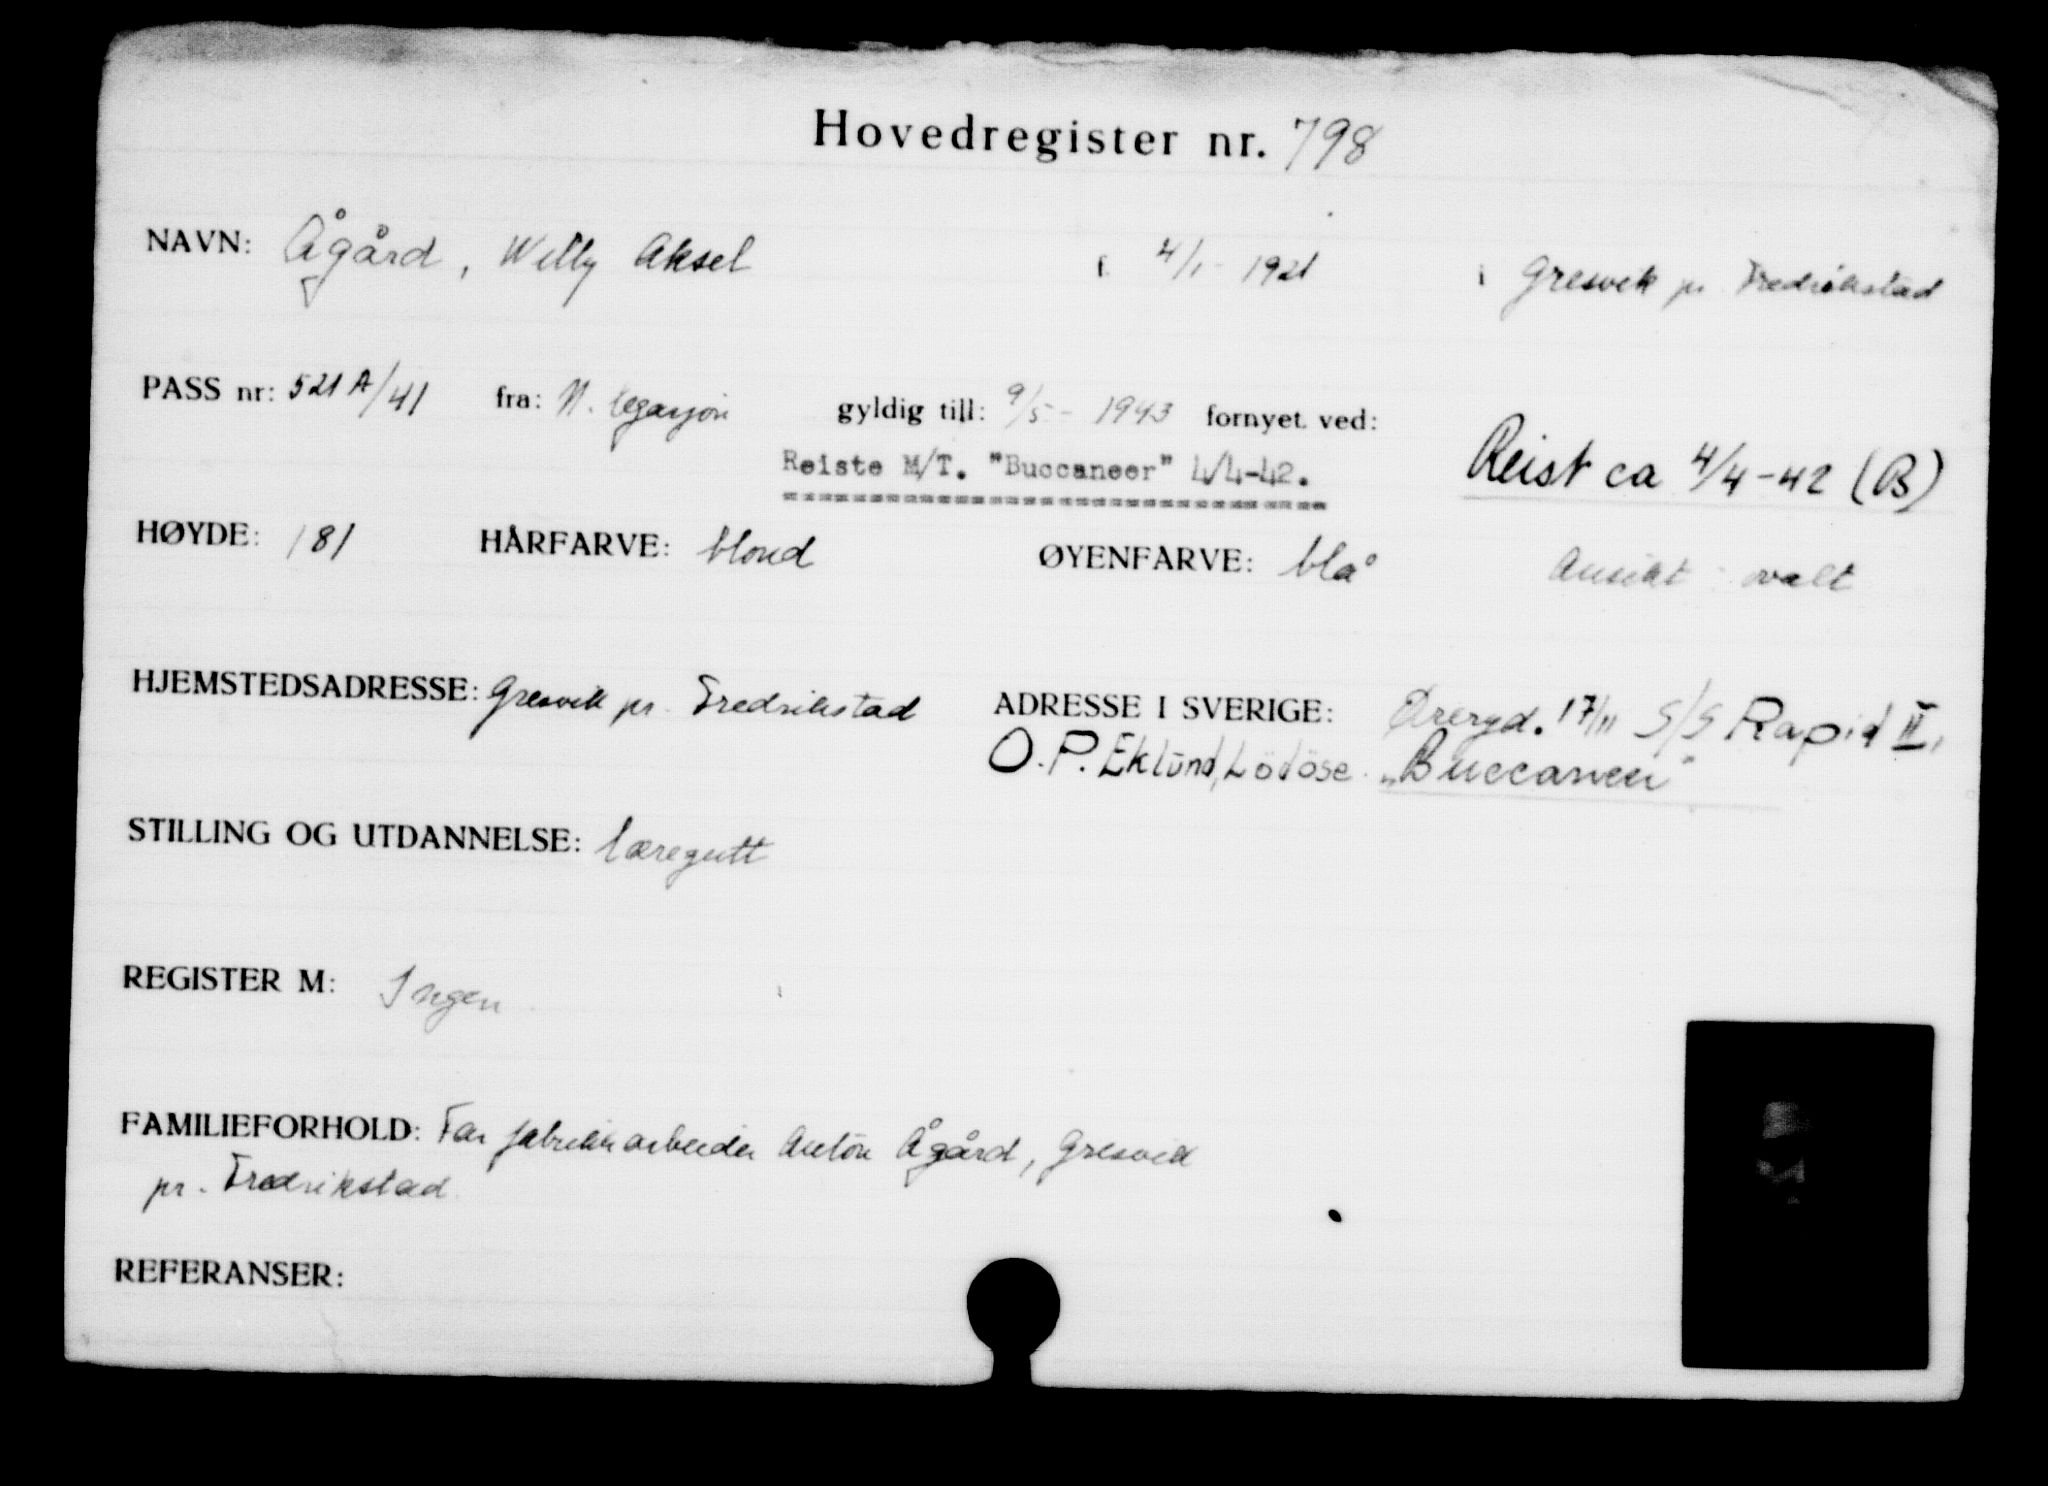 Hovedregister nr. 798
NAVN: Ågård, Willy Aksel f. 4/1 - 1921 i Gresvik pr Fredrikstad
PASS nr: 521 A/41 fra: N. legasjon gyldig till: 9/5 - 1943 fornyet ved:
Reiste M/T. "Buccaneer" 4/4-42. Reist ca 4/4-42 (B)
HØYDE: 181 HÅRFARVE: blond ØYENFARVE: blå Ansikt: ovalt
HJEMSTEDSADRESSE: Gresvik pr. Fredrikstad ADRESSE I SVERIGE: Øreryd. 17/11 S/S Rapid II,
O.P. Eklund, Lödöse. "Buccaneer"
STILLING OG UTDANNELSE: læregutt
REGISTER M: Ingen
FAMILIEFORHOLD: Far fabrikkarbeider Anton Ågård, Gresvik
pr. Fredrikstad
REFERANSER: